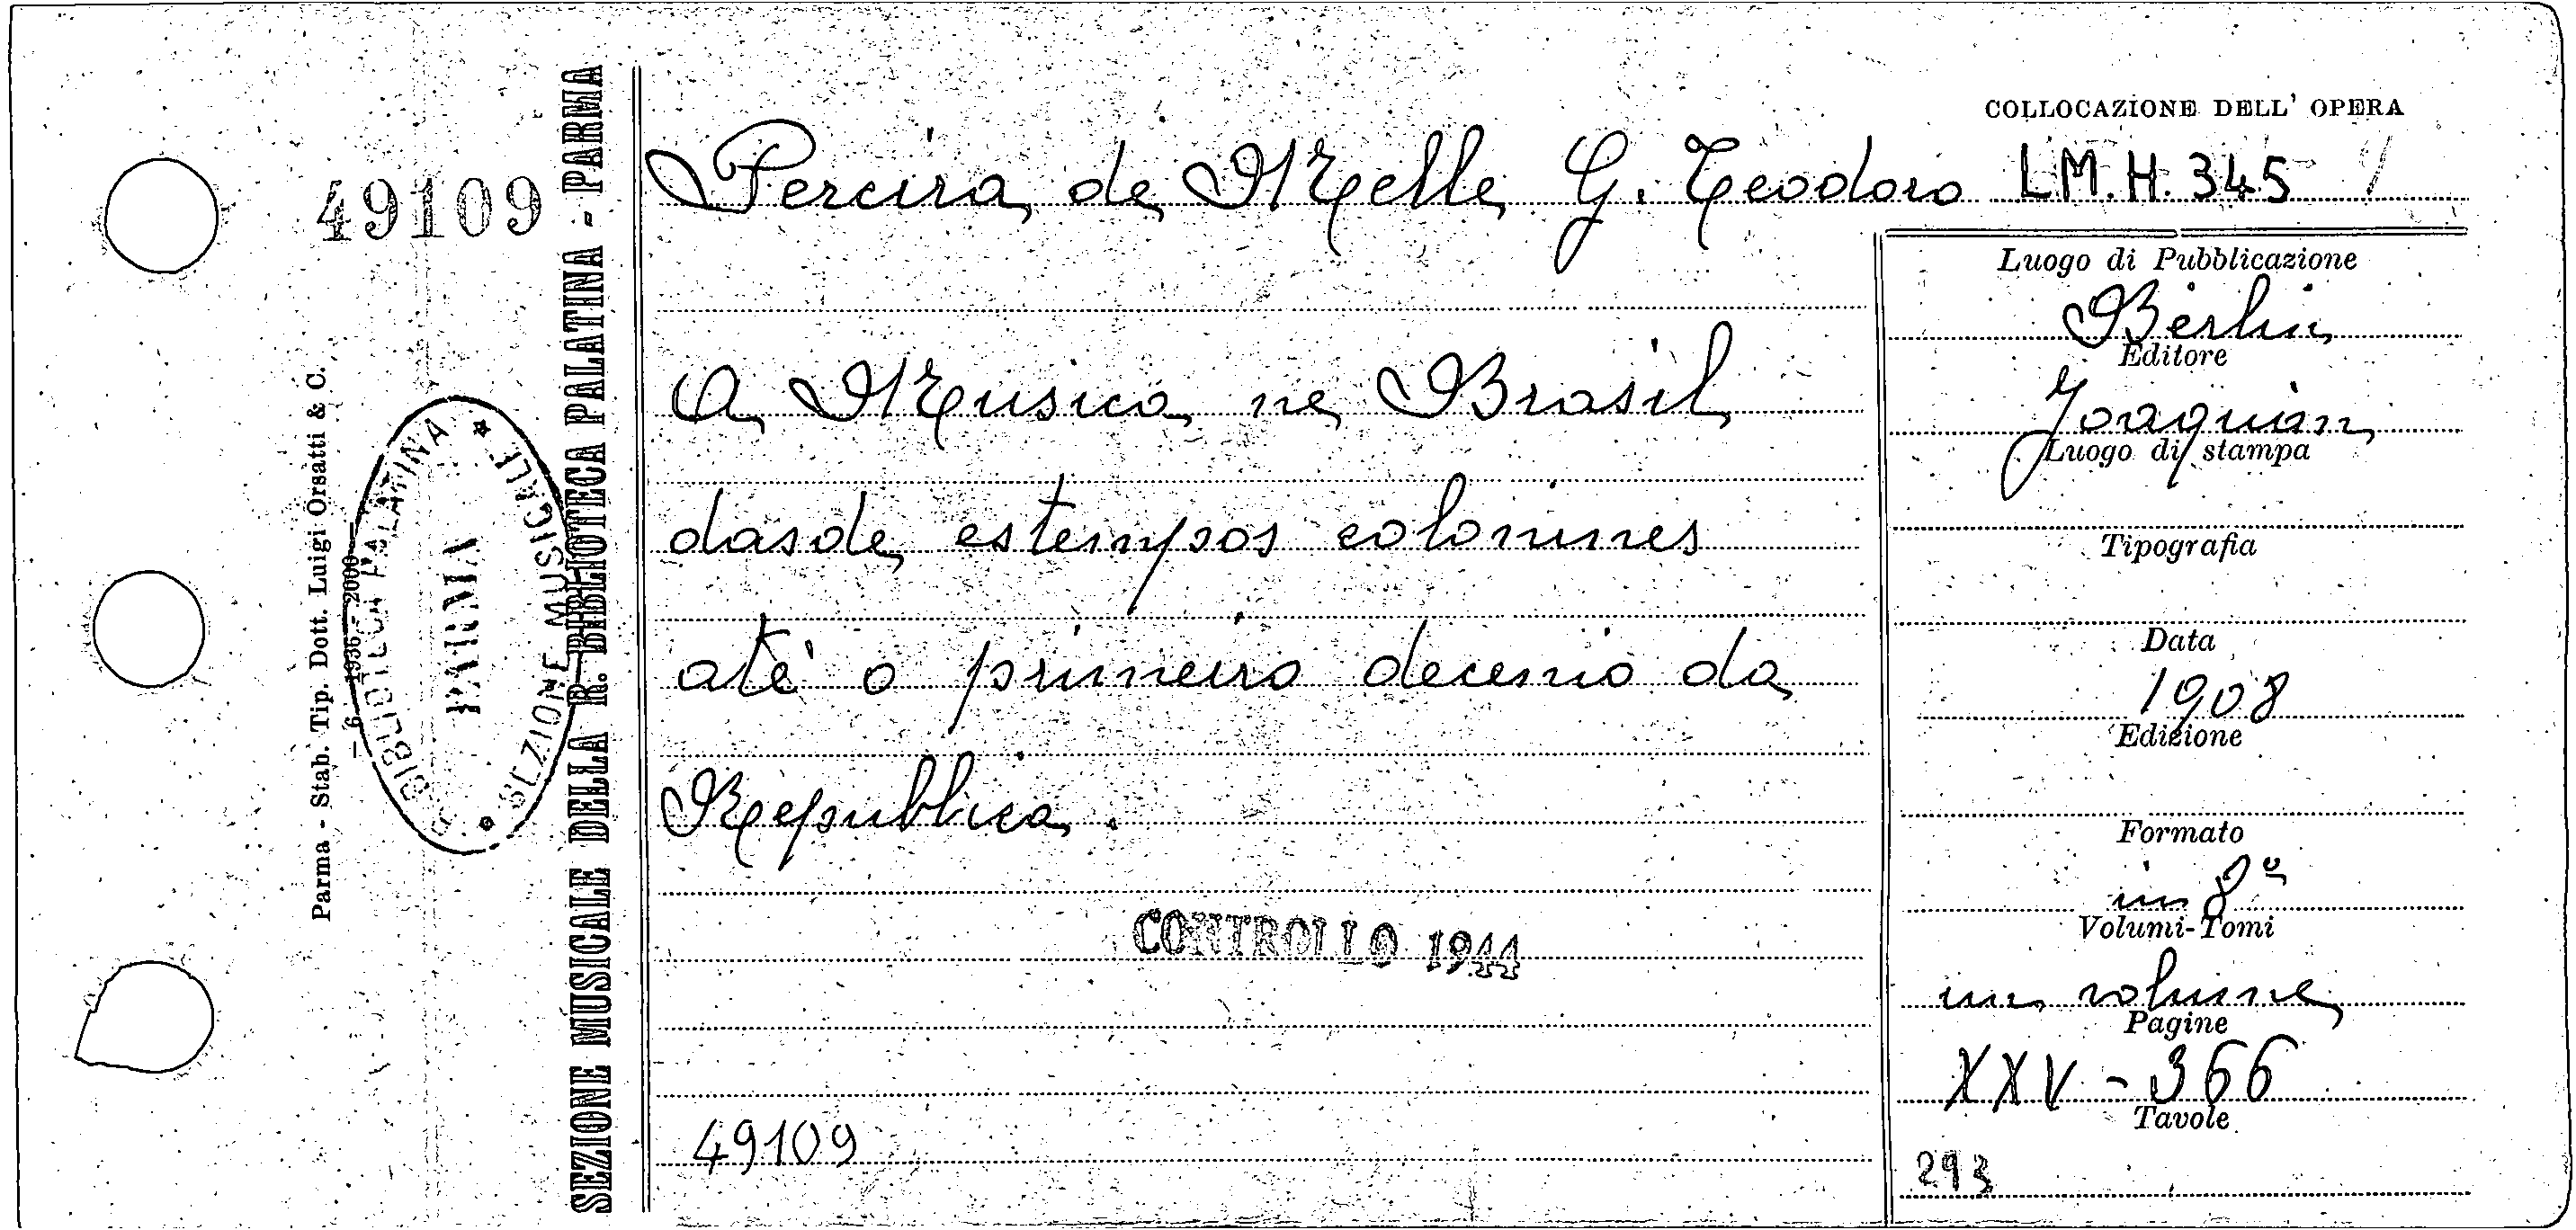 COLLOCAZIONE DELL' OPERA
Pereira de Melle G. Teodoro LM.H.345
49109
Luogo di Pubblicazione
Berlin
Editore
A Musica ne Brasil
Joaquin
Luogo di stampa
dasde estempos colonines
Tipografia
até o primeiro decenio da
Data
1908
Edizione
Repubblica.
Formato
in 8º
CONTROLLO 1944
Volumi-Tomi
un volume
Pagine
XXV - 366
Tavole
49109
293
SEZIONE MUSICALE DELLA R. BIBLIOTECA PALATINA - PARMA
Parma - Stab. Tip. Dott. Luigi Orsatti & C.
- 6 - 1936 - 2000 -
BIBLIOTECA PALATINA * SEZIONE MUSICALE *
PARMA